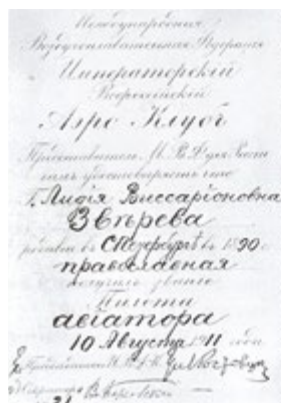 Международная
Воздухоплавательная Федерація
Императорскій
Всероссійскій
Аэро-Клубъ
Представитель М. В. Ф. для Россіи
симъ удостовѣряетъ что
Г. Лидія Виссаріоновна
Звѣрева
въ С Петербургѣ въ 1890
православная
получила званіе
Пилота
авіатора
10 Августа 1911 года